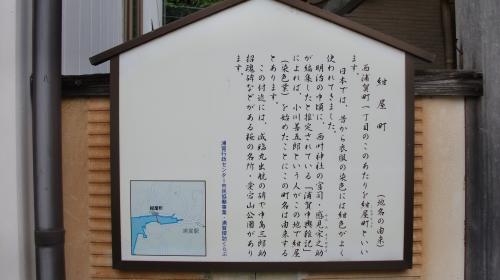 紺屋町
(地名の由来)
西浦賀町一丁目のこのあたりを紺屋町といい
ます。
日本では、昔から衣服の染色には紺色がよく
使われてきました。
明治の中頃に、西叶神社の宮司・感見宋之助
が編集したと推定されている『浦賀中興雑記』
によれば、小川善五郎という人がこの地で紺屋
(染色業)を始めたことにこの町名は由来する
とあります。
この付近には、咸臨丸出航の碑や中島三郎助
招魂碑などがある桜の名所・愛宕山公園があり
ます。
浦賀行政センター市民協働事業・浦賀探訪くらぶ
紺屋町
浦賀駅